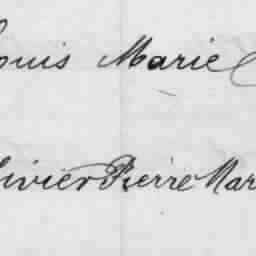 ouis Marie
ivier Pierre Mar